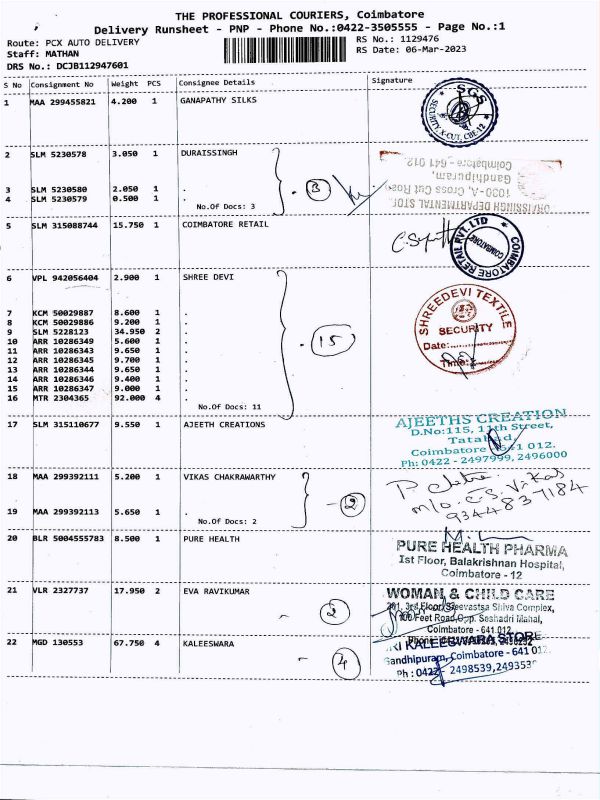 THE PROFESSIONAL COURIERS, Coimbatore
Delivery Runsheet - PNP - Phone No.:0422-3505555 - Page No.:1
Route: PCX AUTO DELIVERY RS No.: 1129476
Staff: MATHAN RS Date: 06-Mar-2023
DRS No.: DCJB112947601
S No Consignment No Weight PCS Consignee Details Signature
1 MAA 299455821 4.200 1 GANAPATHY SILKS
SGS
SECURITY, X-CUT, CBE-12
2 SLM 5230578 3.050 1 DURAISSINGH
3 SLM 5230580 2.050 1 .
4 SLM 5230579 0.500 1 .
No.Of Docs: 3
3
DURAISSINGH DEPARTMENTAL STORE
1030-A, Cross Cut Road
Gandhipuram,
Coimbatore - 641 012
5 SLM 315088744 15.750 1 COIMBATORE RETAIL
COIMBATORE RETAIL PVT. LTD
COIMBATORE
6 VPL 942056404 2.900 1 SHREE DEVI
7 KCM 50029887 8.600 1 .
8 KCM 50029886 9.200 1 .
9 SLM 5228123 34.950 2 .
10 ARR 10286349 5.600 1 .
11 ARR 10286343 9.650 1 .
12 ARR 10286345 9.700 1 .
13 ARR 10286344 9.650 1 .
14 ARR 10286346 9.400 1 .
15 ARR 10286347 9.000 1 .
16 MTR 2304365 92.000 4 .
No.Of Docs: 11
15
SHREEDEVI TEXTILE
SECURITY
Date:
Time:
17 SLM 315110677 9.550 1 AJEETH CREATIONS
AJEETHS CREATION
D.No:115, 11th Street,
Tatabad,
Coimbatore 641 012.
Ph: 0422 - 2497999, 2496000
18 MAA 299392111 5.200 1 VIKAS CHAKRAWARTHY
19 MAA 299392113 5.650 1 .
No.Of Docs: 2
2
9344837184
20 BLR 5004555783 8.500 1 PURE HEALTH
PURE HEALTH PHARMA
Ist Floor, Balakrishnan Hospital,
Coimbatore - 12
21 VLR 2327737 17.950 2 EVA RAVIKUMAR
2
WOMAN & CHILD CARE
3rd Floor, Sreevastsa Shiva Complex,
100 Feet Road, Opp. Seshadri Mahal,
Coimbatore - 641 012
22 MGD 130553 67.750 4 KALEESWARA
4
SRI KALEESWARA STORE
Gandhipuram, Coimbatore - 641 012.
Ph : 0422 - 2498539,